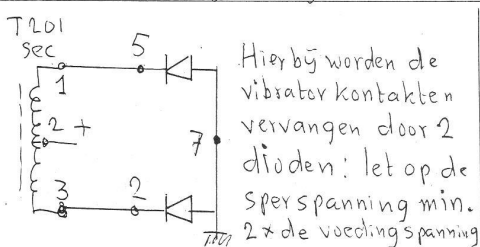 T201
sec
5
1
2 +
7
3
2
Hierbij worden de
vibrator kontakten
vervangen door 2
dioden: let op de
sperspanning min.
2x de voedingspanning